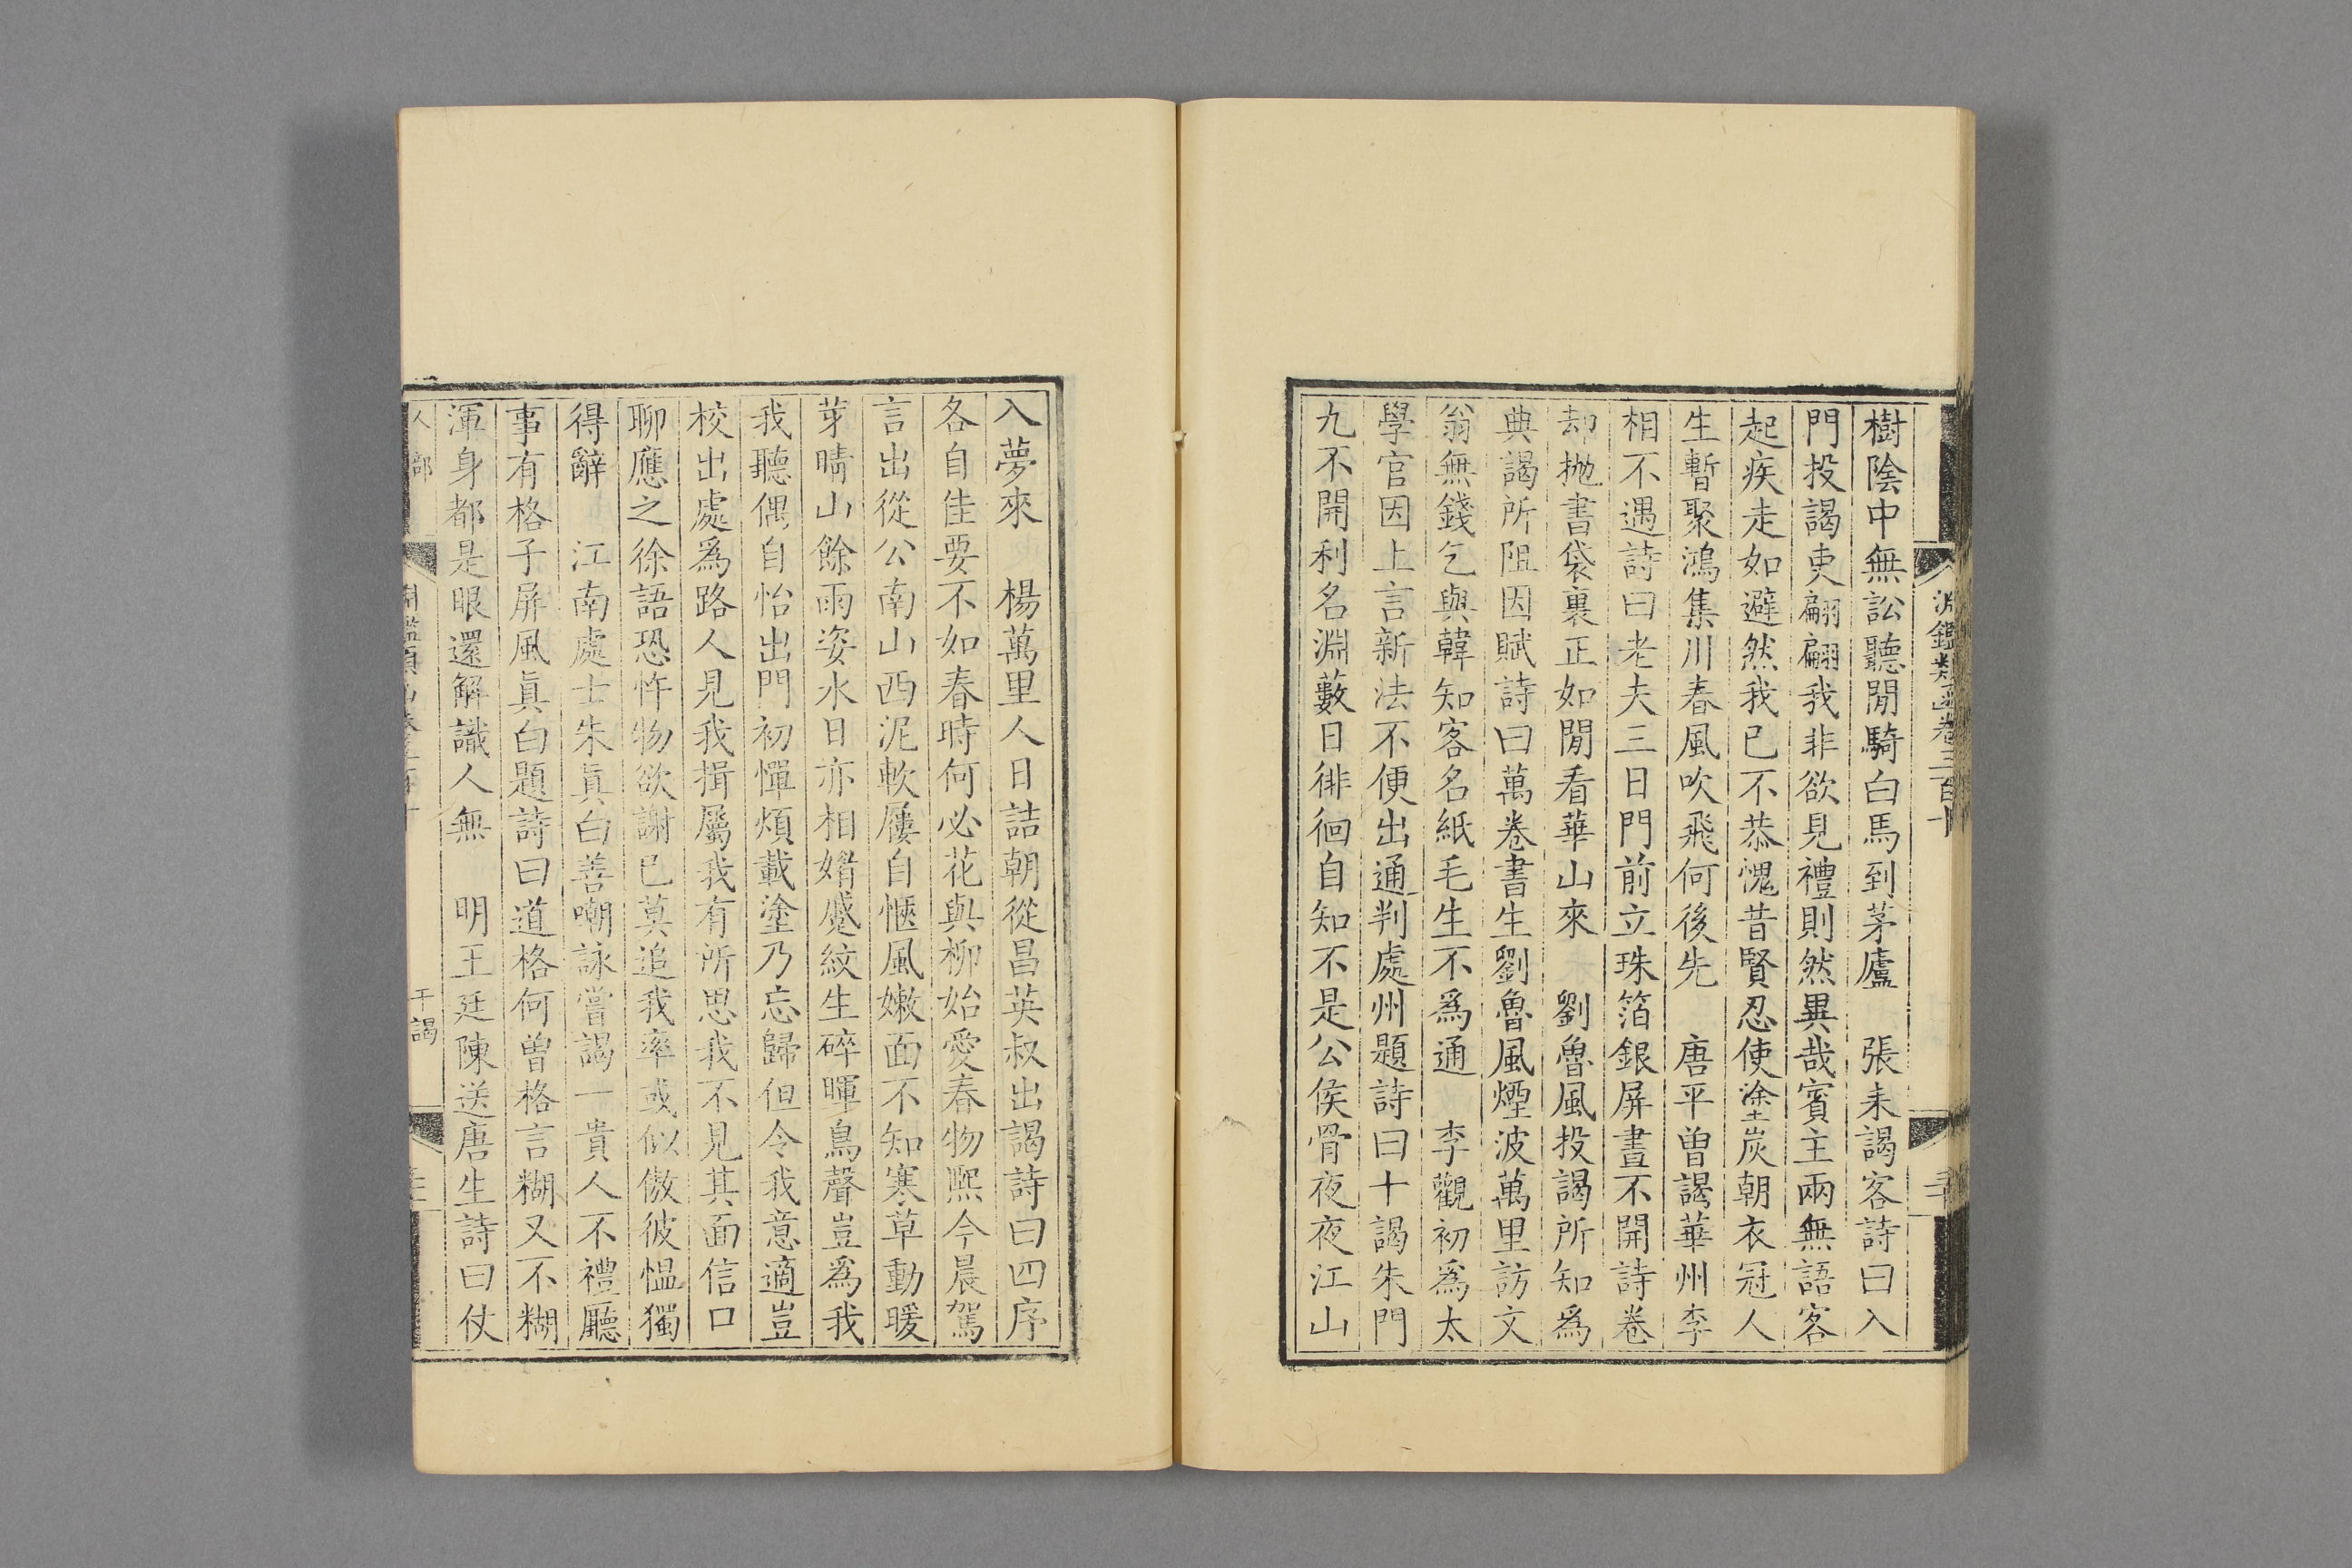 淵鑑類函卷三百十
樹陰中無訟聽閒騎白馬到茅廬　張耒謁客詩曰入
門投謁吏翩翩我非欲見禮則然異哉賓主兩無語客
起疾走如避然我已不恭愧昔賢忍使塗炭朝衣冠人
生暫聚鴻集川春風吹飛何後先　唐平曾謁華州李
相不遇詩曰老夫三日門前立珠箔銀屏晝不開詩卷
却拋書袋裏正如閒看華山來　劉魯風投謁所知爲
典謁所阻因賦詩曰萬卷書生劉魯風煙波萬里訪文
翁無錢乞與韓知客名紙毛生不爲通　李觀初爲太
學官因上言新法不便出通判處州題詩曰十謁朱門
九不開利名淵藪日徘徊自知不是公侯骨夜夜江山
入夢來　楊萬里人日詰朝從昌英叔出謁詩曰四序
各自佳要不如春時何必花與柳始愛春物熙今晨駕
言出從公南山西泥軟屨自愜風嫩面不知寒草動暖
芽晴山餘雨姿水日亦相媚蹙紋生碎暉鳥聲豈爲我
我聽偶自怡出門初憚煩載塗乃忘歸但令我意適豈
校出處爲路人見我揖屬我有所思我不見其面信口
聊應之徐語恐忤物欲謝已莫追我率或似傲彼慍獨
得辭　江南處士朱眞白善嘲詠嘗謁一貴人不禮廳
事有格子屏風眞白題詩曰道格何曾格言糊又不糊
渾身都是眼還解識人無　明王廷陳送唐生詩曰仗
人部
干謁